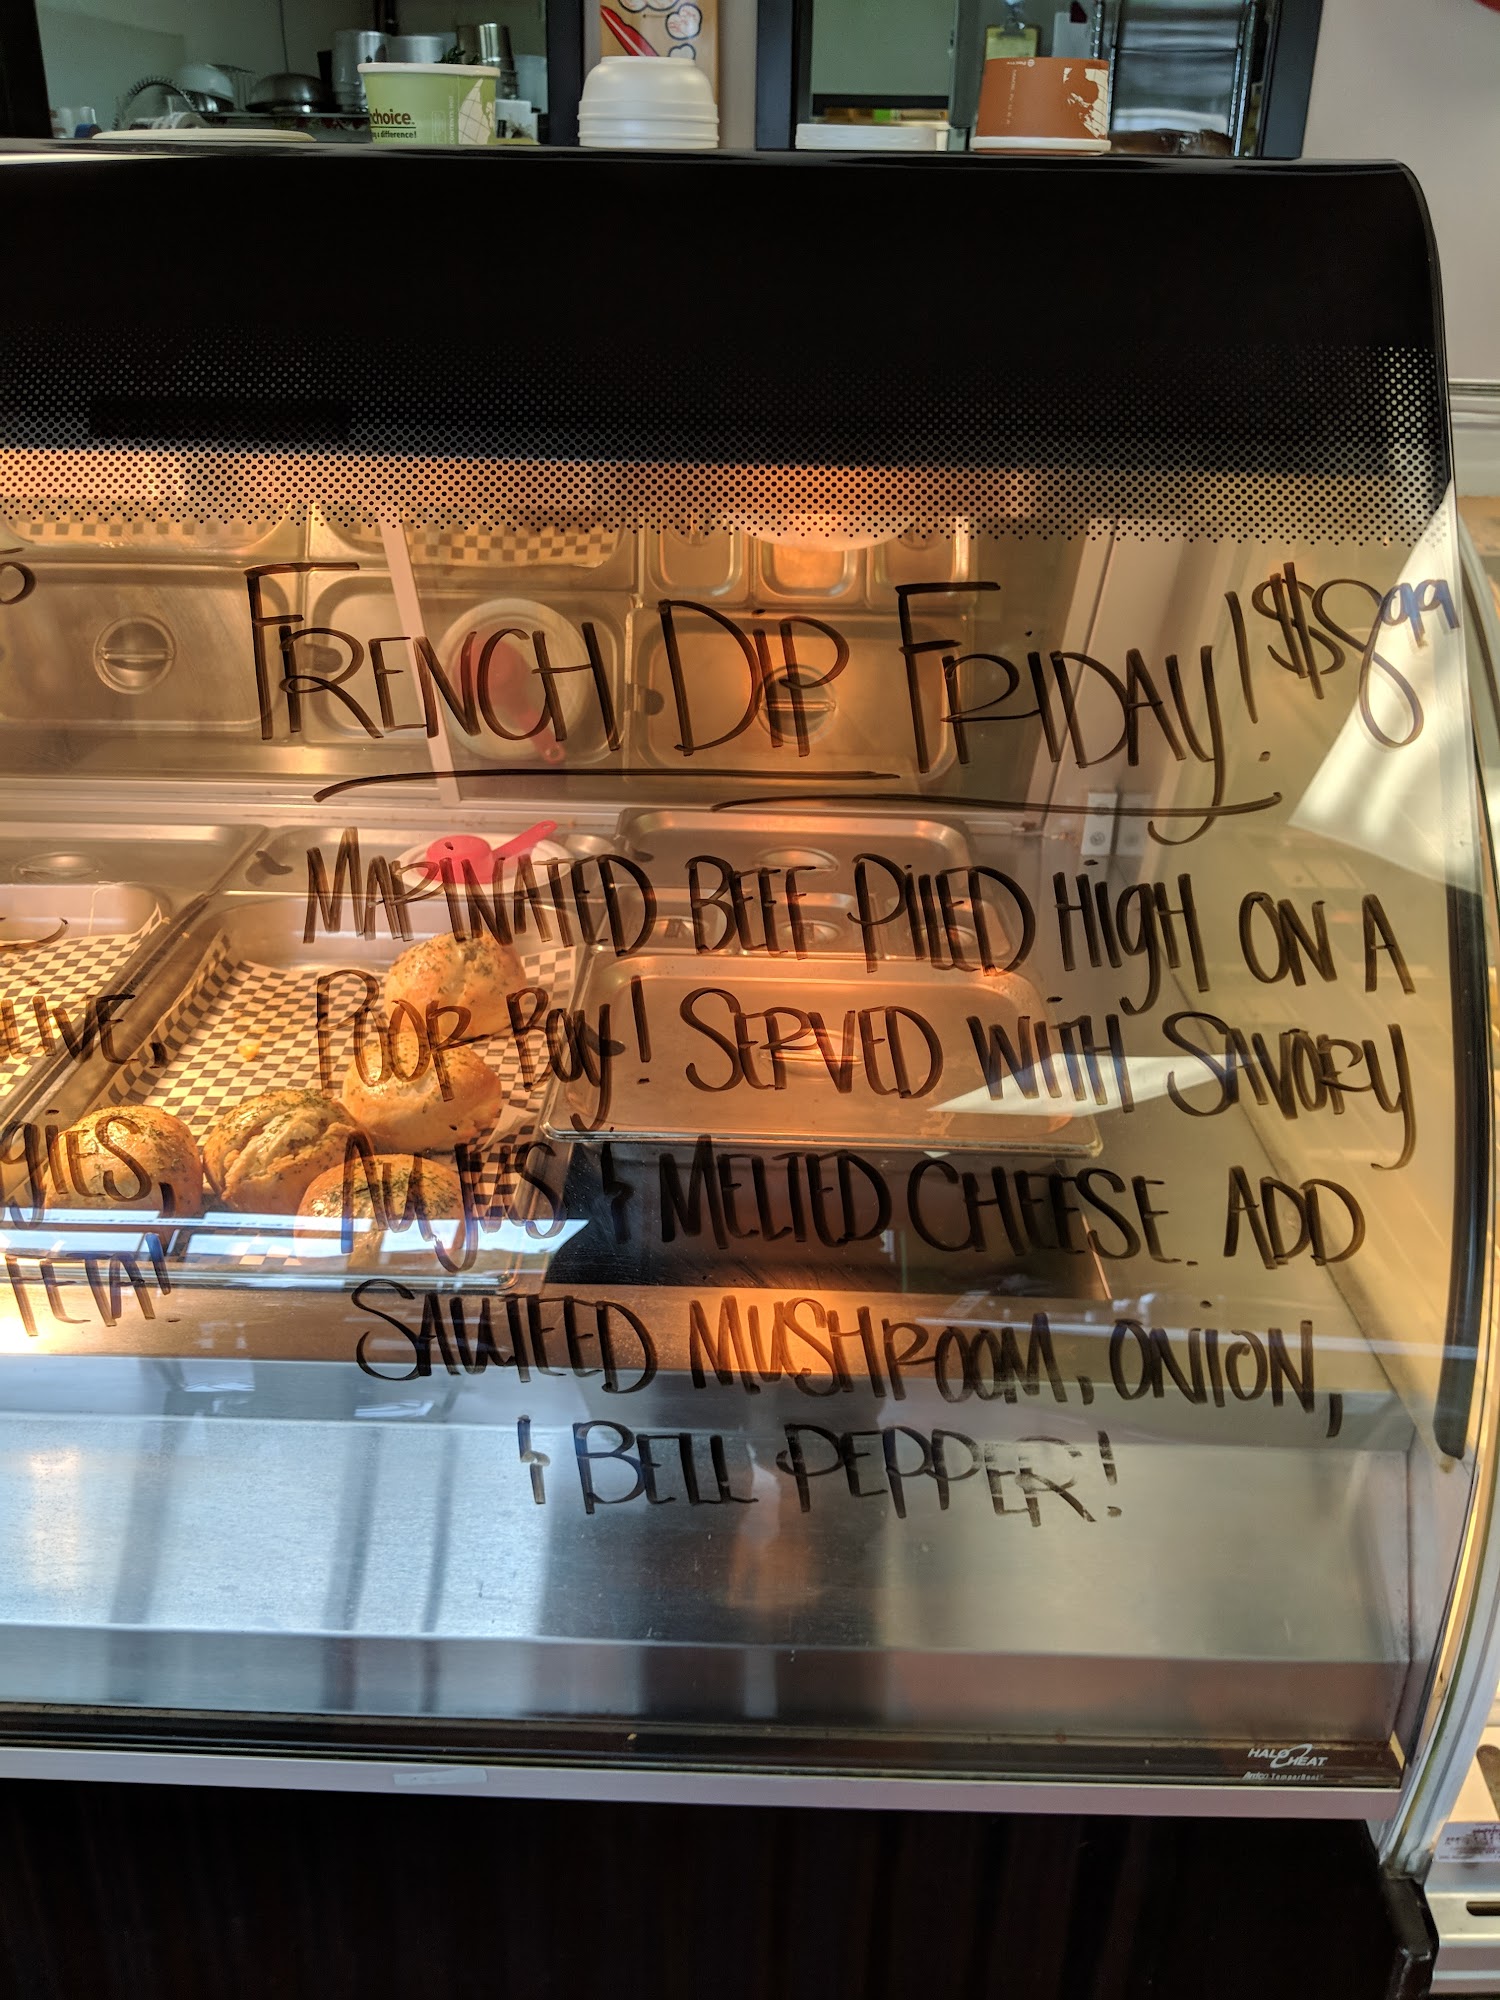 choice.
a difference!
FRENCH DIP FRIDAY! $8.99
MARINATED BEEF PILED HIGH ON A
POOR BOY! SERVED WITH SAVORY
AU JUS & MELTED CHEESE. ADD
SAUTEED MUSHROOM, ONION,
& BELL PEPPER!
FETA!
HALO HEAT